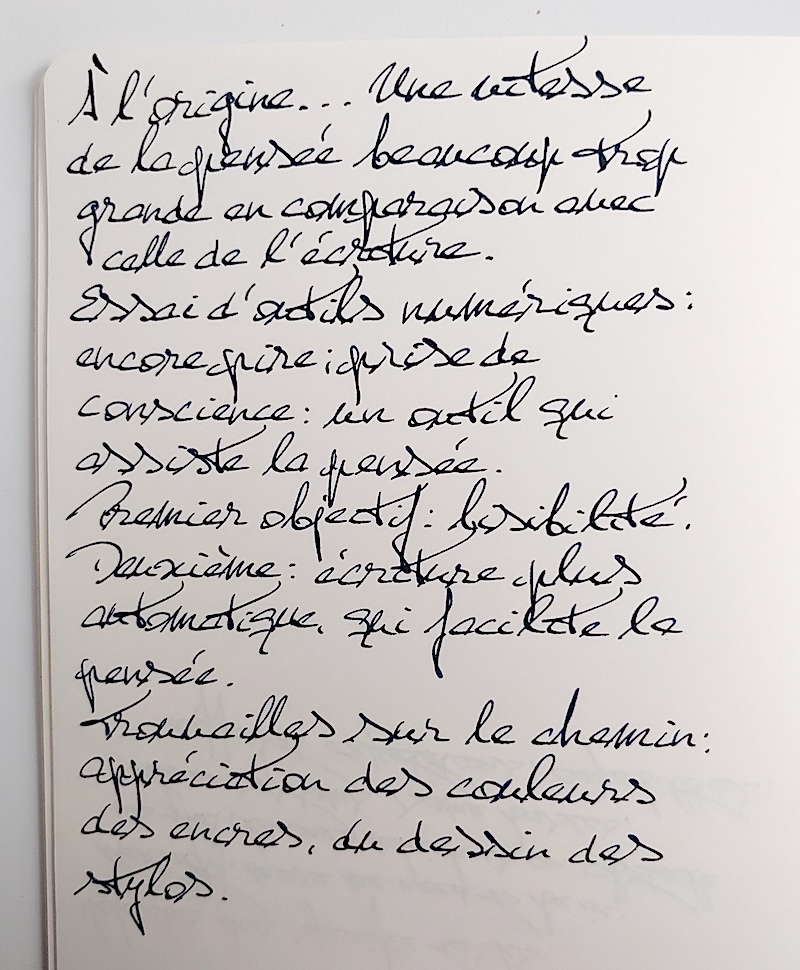 À l'origine... Une vitesse
de la pensée beaucoup trop
grande en comparaison avec
celle de l'écriture.
Essai d'outils numériques :
encore pire ; prise de
conscience : un outil qui
assiste la pensée.
Premier objectif : lisibilité.
Deuxième : écriture plus
automatique, qui facilite la
pensée.
Trouvailles sur le chemin :
appréciation des couleurs
des encres, du dessin des
stylos.